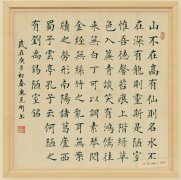 山不在高有仙則名水不
在深有龍則靈斯是陋室
惟吾德馨苔痕上階綠草
色入簾青談笑有鴻儒往
來無白丁可以調素琴閱
金經無絲竹之亂耳無案
牘之勞形南陽諸葛廬西
蜀子雲亭孔子云何陋之
有劉禹錫陋室銘
歲在庚子初春